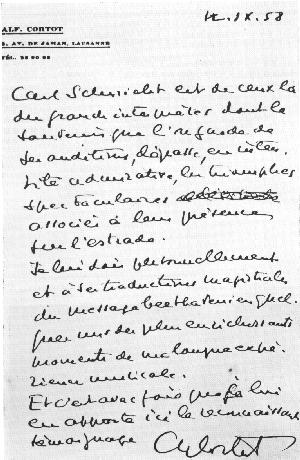 ALF. CORTOT
3, AV. DE JAMAN, LAUSANNE
TÉL.
IX. 58
Carl Schuricht est de ceux-là
des grands interprètes dont le
souvenir que l'on garde de
ses auditions, dépasse, en inten-
sité admirative, les triomphes
spectaculaires
associés à leur présence
sur l'estrade.
Je lui dois personnellement
et à ses traductions magistrales
du message beethovenien quel-
ques uns des plus enrichissants
moments de ma longue expé-
rience musicale.
Et c'est avec joie que je lui
en apporte ici le reconnaissant
témoignage
Alf Cortot